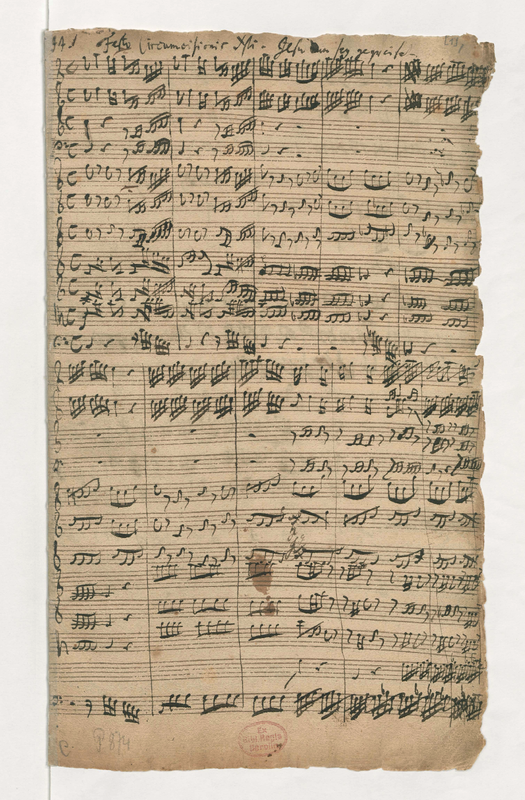 J. J. Festo Circumcisionis Xsti. Jesu nun sey gepreiset.
P 874
Ex
Bibl. Regia
Berolin.